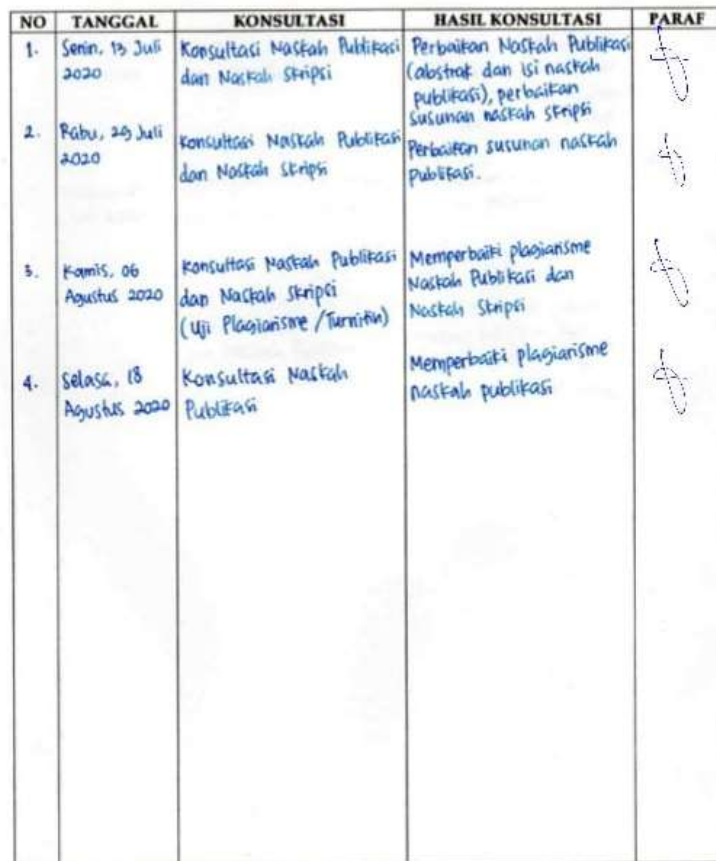 NO TANGGAL KONSULTASI HASIL KONSULTASI PARAF
1. Senin, 13 Juli 2020
Konsultasi Naskah Publikasi
dan Naskah Skripsi
Perbaikan Naskah Publikasi
(abstrak dan isi naskah
publikasi), perbaikan
susunan naskah skripsi
2. Rabu, 29 Juli
2020
Konsultasi Naskah Publikasi
dan Naskah Skripsi
Perbaikan susunan naskah
publikasi.
3. Kamis, 06
Agustus 2020
Konsultasi Naskah Publikasi
dan Naskah Skripsi
(Uji Plagiarisme / Turnitin)
Memperbaiki plagiarisme
Naskah Publikasi dan
Naskah Skripsi
4. Selasa, 18
Agustus 2020
Konsultasi Naskah
Publikasi
Memperbaiki plagiarisme
naskah publikasi